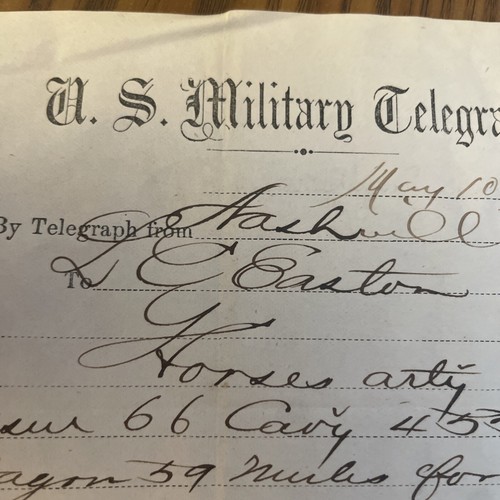 U. S. Military Telegra
May 10
By Telegraph from Nashvill
To L C Easton
Horses arty
sur 66 Cavy 453
agon 59 Mules for